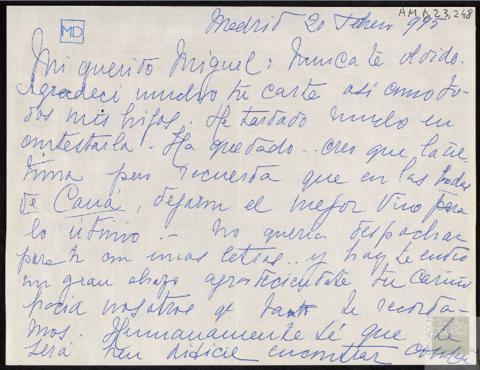 AMD,23,248
MD
Madrid 20 Febrero 975
Mi querido Miguel: Nunca te olvido.
Agradeci mucho tu carta así como to-
dos mis hijos. He tardado mucho en
contestarla. Ha quedado.. creo que la úl-
tima pero recuerda que en las bodas
de Caná, dejaron el mejor vino para
lo último.- No quería despachar
para ti con unas letras.. y hoy te envio
un gran abrazo agradeciendote tu cariño
hacia nosotros q. tanto te recorda-
mos. Humanamente sé que te
será muy dificil encontrar